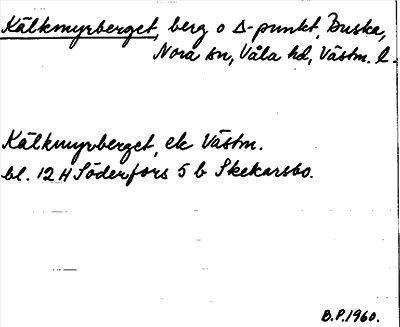 Kälkmyrberget, berg o Δ-punkt, Buska,
Nora sn, Våla hd, Västm. l.
Kälkmyrberget, ek Västm.
bl. 12 H Söderfors 5 b Skekarsbo.
B.P. 1960.